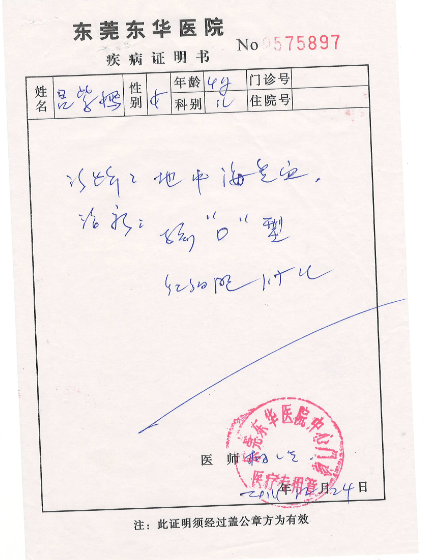 东莞东华医院
疾病证明书
No 0575897
姓名 吕 性别 女 年龄 4岁 门诊号
科别 儿 住院号
诊断：地中海贫血.
治疗：输“O”型
红细胞
东莞东华医院中心门诊
医疗专用章
医师
年 月24日
注：此证明须经过盖公章方为有效